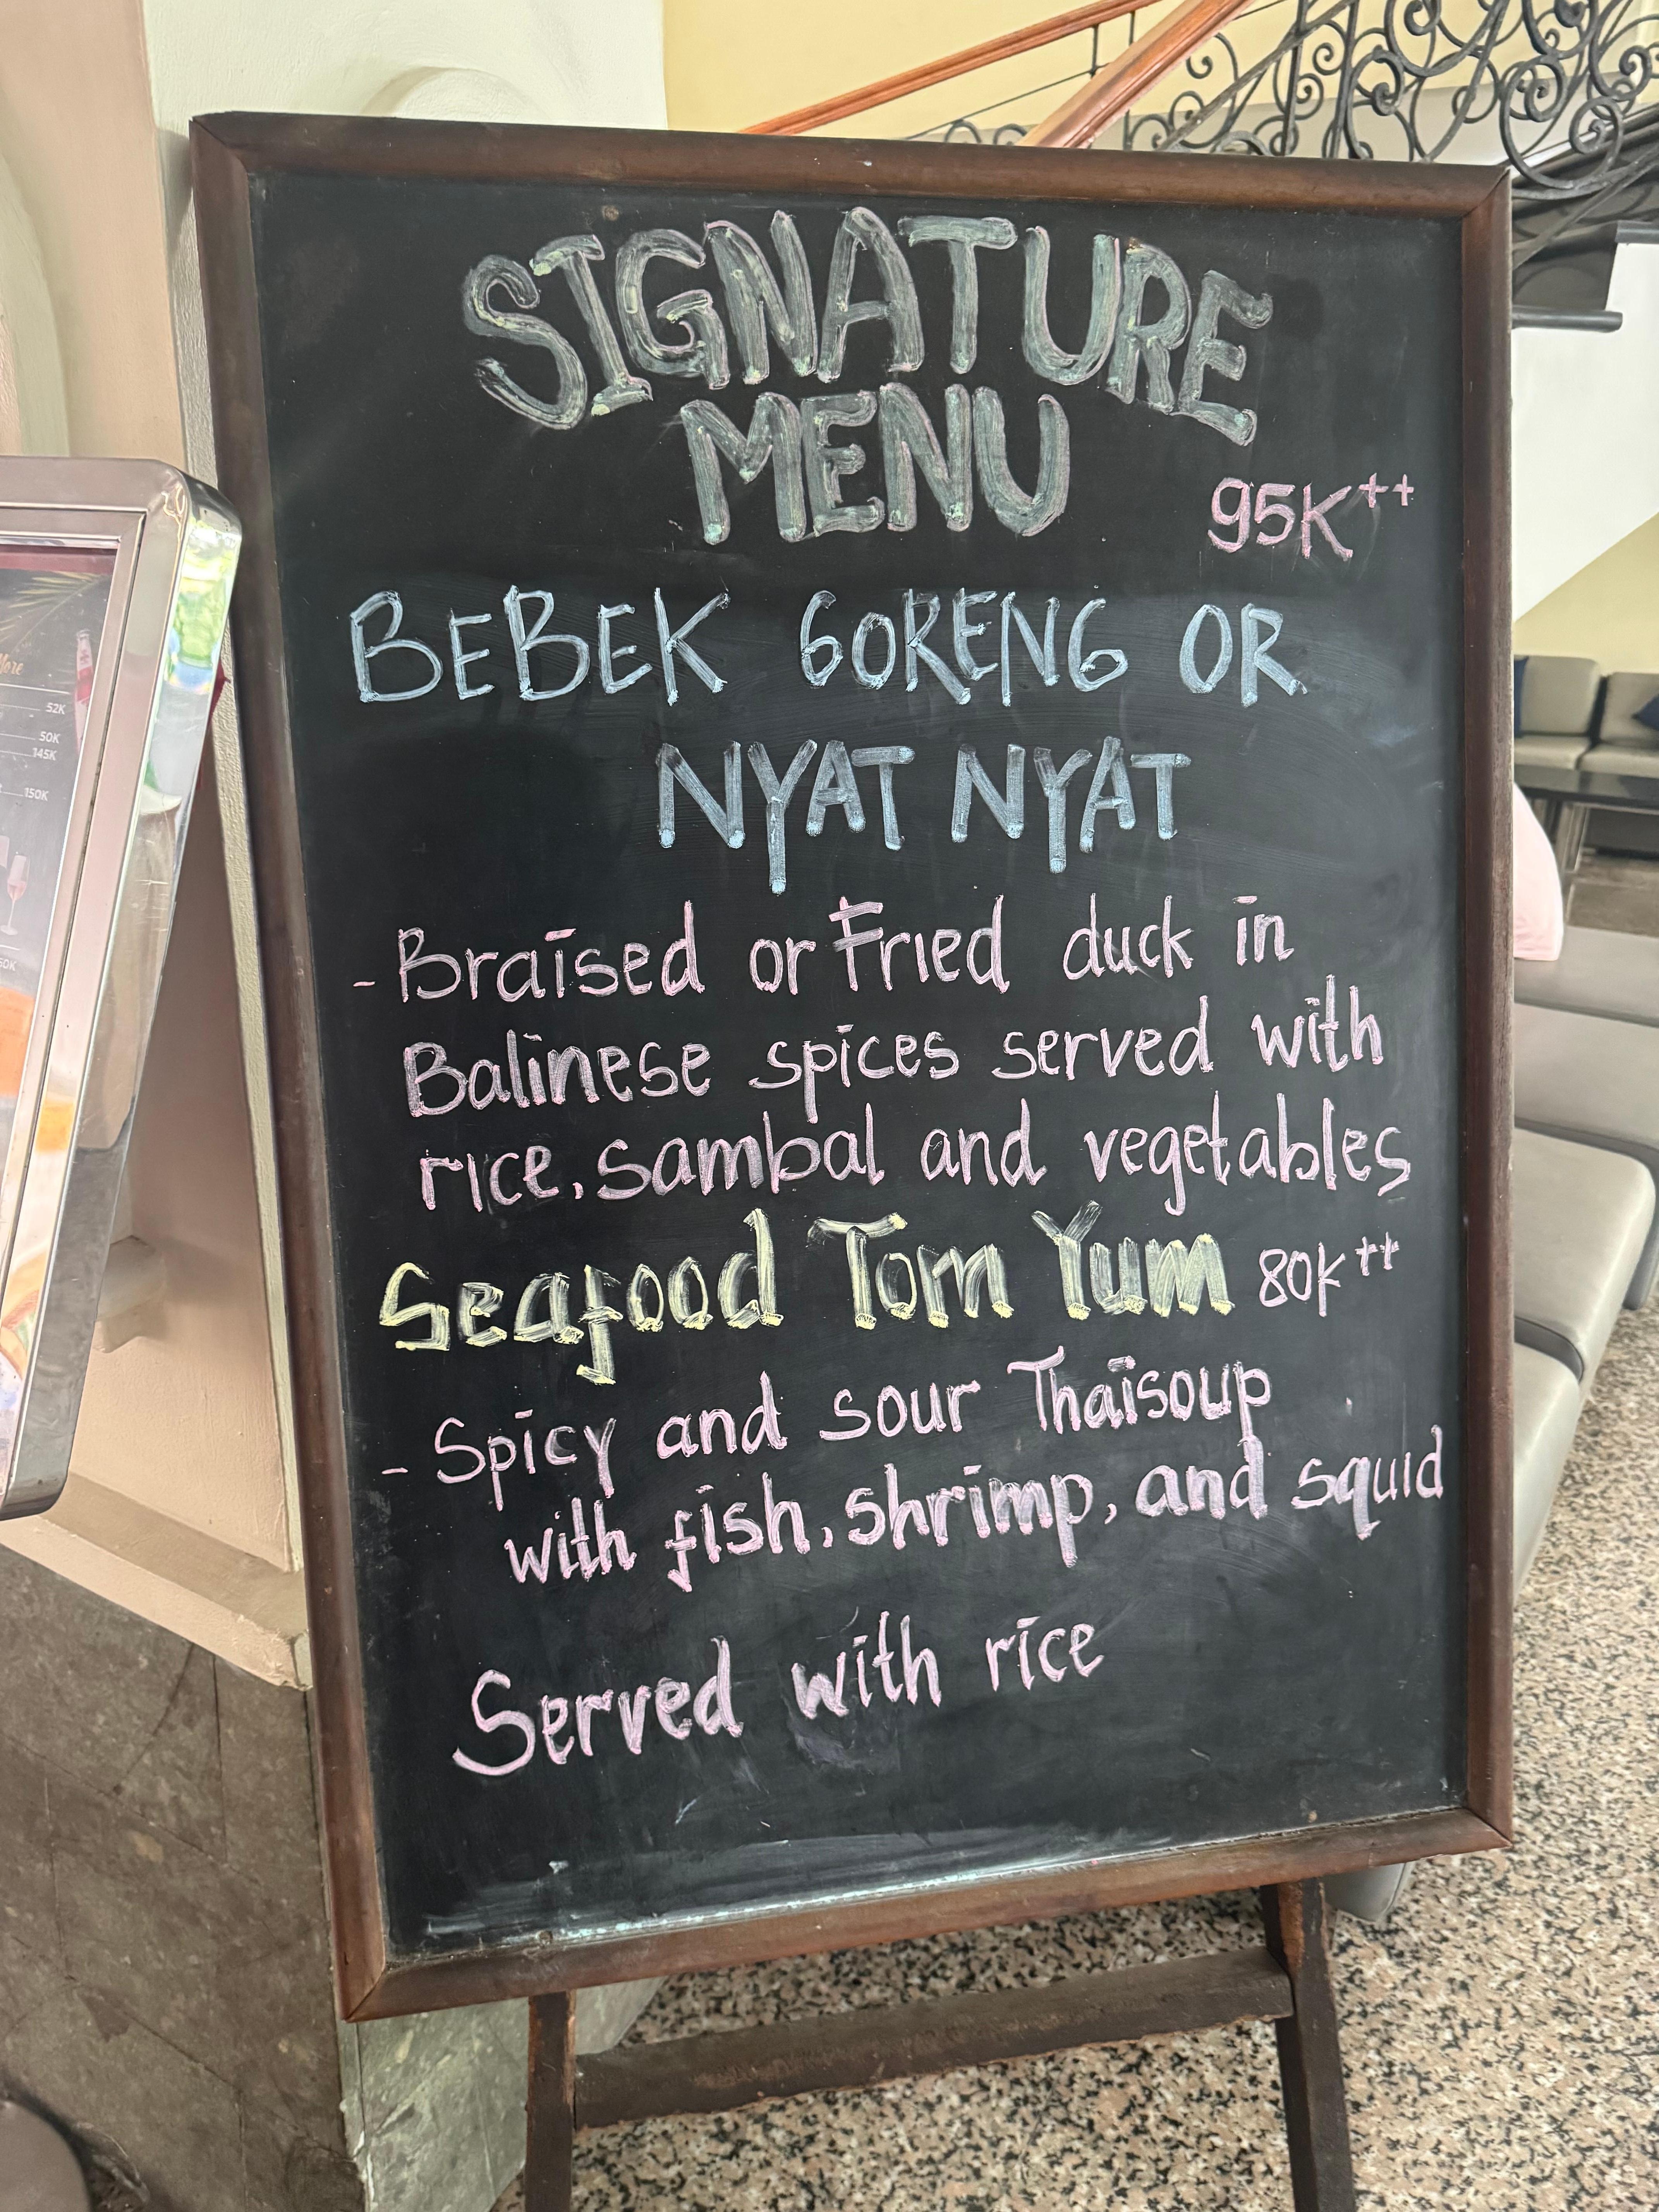 SIGNATURE
MENU
95K++
BEBEK GORENG OR
NYAT NYAT
- Braised or Fried duck in
Balinese spices served with
rice, sambal and vegetables
Seafood Tom Yum 80K++
- Spicy and sour Thai soup
with fish, shrimp, and squid
Served with rice
More
52K
50K
145K
150K